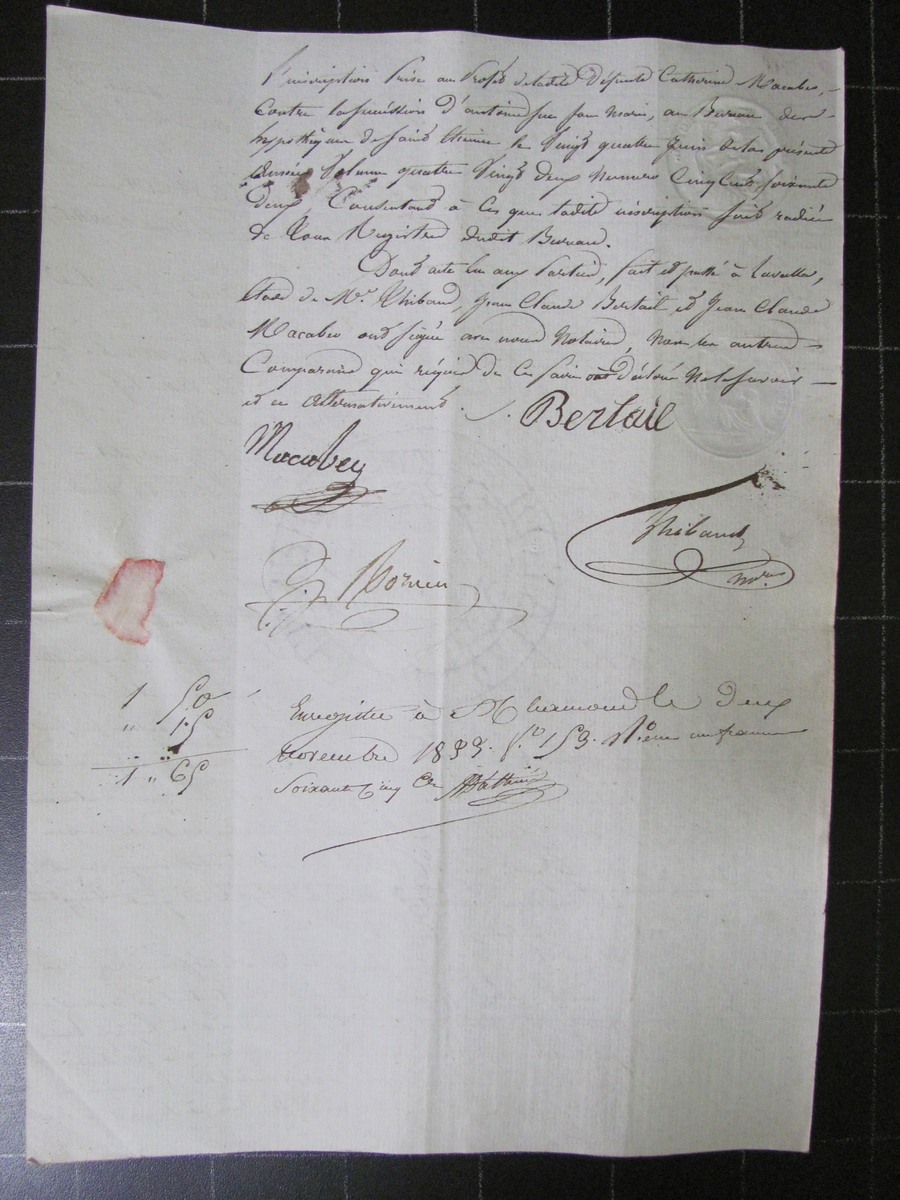 l'inscription Prise au Profit de ladite Defunte Catherine Macabeo,
Contre la succession d'antoine son mari, au Bureau des
hypothèques de Saint Etienne le Vingt quatre Juin de la présente
année Volume quatre Vingt deux Numero Cinq Cent soixante
deux Consentant à ce que ladite inscription soit radiée
de tous Registres dudit Bureau.
Dont acte lu aux Parties, fait et passé à Lavalla,
Etude de Me. Thibaud, Jean Claude Bertail et Jean Claude
Macabeo ont signé avec nous Notaire, Non les autres
Comparans qui requis de Ce faire ont déclaré Ne le savoir
et ce Alternativement.
Bertail
Macabey
Thibaud
nore
1 50
" 15
1 " 65
Enregistré à St Chamond le Deux
novembre 1833. fo. 153. Ro. un franc
Soixante Cinq Ces